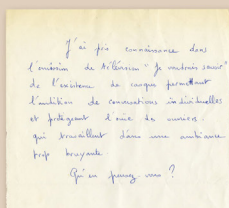 J'ai pris connaissance dans
l'émission de télévision "Je voudrais savoir"
de l'existence de casques permettant
l'audition de conversations individuelles
et protégeant l'ouie des ouvriers
qui travaillent dans une ambiance
trop bruyante.
Qu'en pensez vous ?